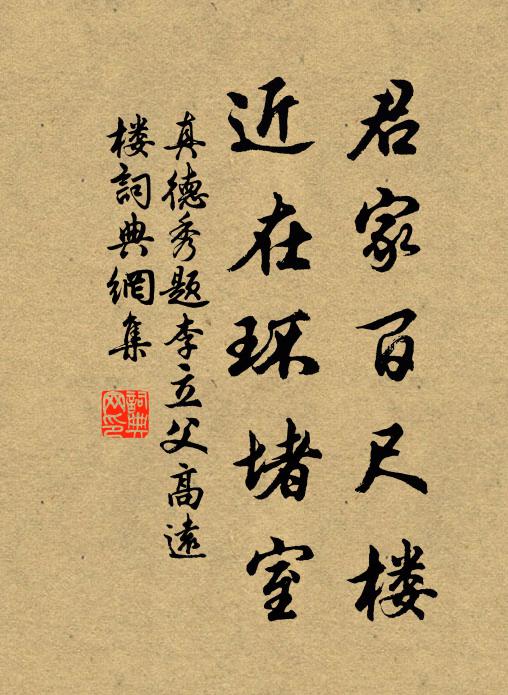 君家百尺楼
近在环堵室
真德秀题李立父高遠
楼詞典網集
詞典網印